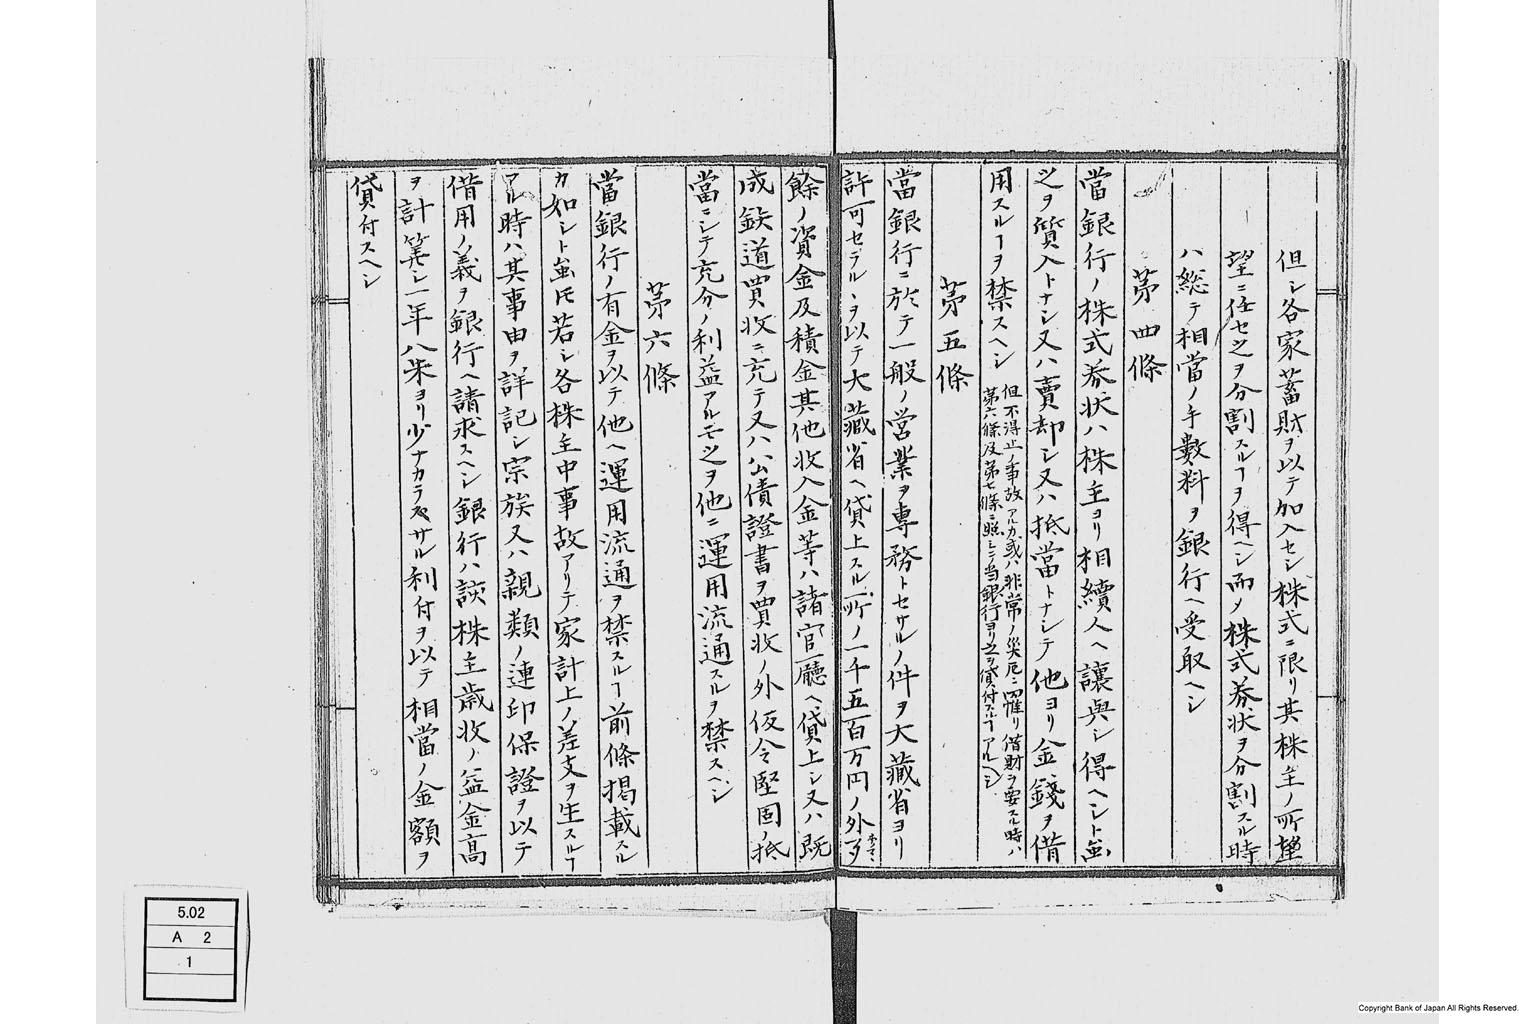 但シ各家蓄財ヲ以テ加入セシ株式ニ限リ其株主ノ所望
望ニ任セ之ヲ分割スルヿヲ得ヘシ而メ株式券状ヲ分割スル時
ハ総テ相當ノ手數料ヲ銀行ヘ受取ヘシ
第四條
當銀行ノ株式券状ハ株主ヨリ相續人ヘ讓與シ得ヘシト虽
之ヲ質入トナシ又ハ賣却シ又ハ抵當トナシテ他ヨリ金錢ヲ借
用スルヿヲ禁スヘシ
但不得止ノ事故アルカ或ハ非常ノ災厄ニ罹リ借財ヲ要スル時ハ
第六條及第七條ニ照シテ当銀行ヨリ之ヲ貸付スルヿアルヘシ
第五條
當銀行ニ於テ一般ノ営業ヲ専務トセサルノ件ヲ大藏省ヨリ
許可セラルヽヲ以テ大藏省ヘ貸上スル所ノ一千五百万円ノ外
餘ノ資金及積金其他收入金等ハ諸官廳ヘ貸上シ又ハ既
成鉄道買收ニ充テ又ハ公債證書ヲ買收ノ外仮令堅固ノ抵
當ニシテ充分ノ利益アルモ之ヲ他ニ運用流通スルヲ禁スヘシ
第六條
當銀行ノ有金ヲ以テ他ヘ運用流通ヲ禁スルヿ前條掲載スル
カ如シト虽𪜈若シ各株主中事故アリテ家計上ノ差支ヲ生スルヿ
アル時ハ其事由ヲ詳記シ宗族又ハ親類ノ連印保證ヲ以テ
借用ノ義ヲ銀行ヘ請求スヘシ銀行ハ該株主歳收ノ益金高
ヲ計算シ一年八朱ヨリ少ナカラサル利付ヲ以テ相當ノ金額ヲ
貸付スヘシ
5.02
A 2
1
Copyright Bank of Japan All Rights Reserved.